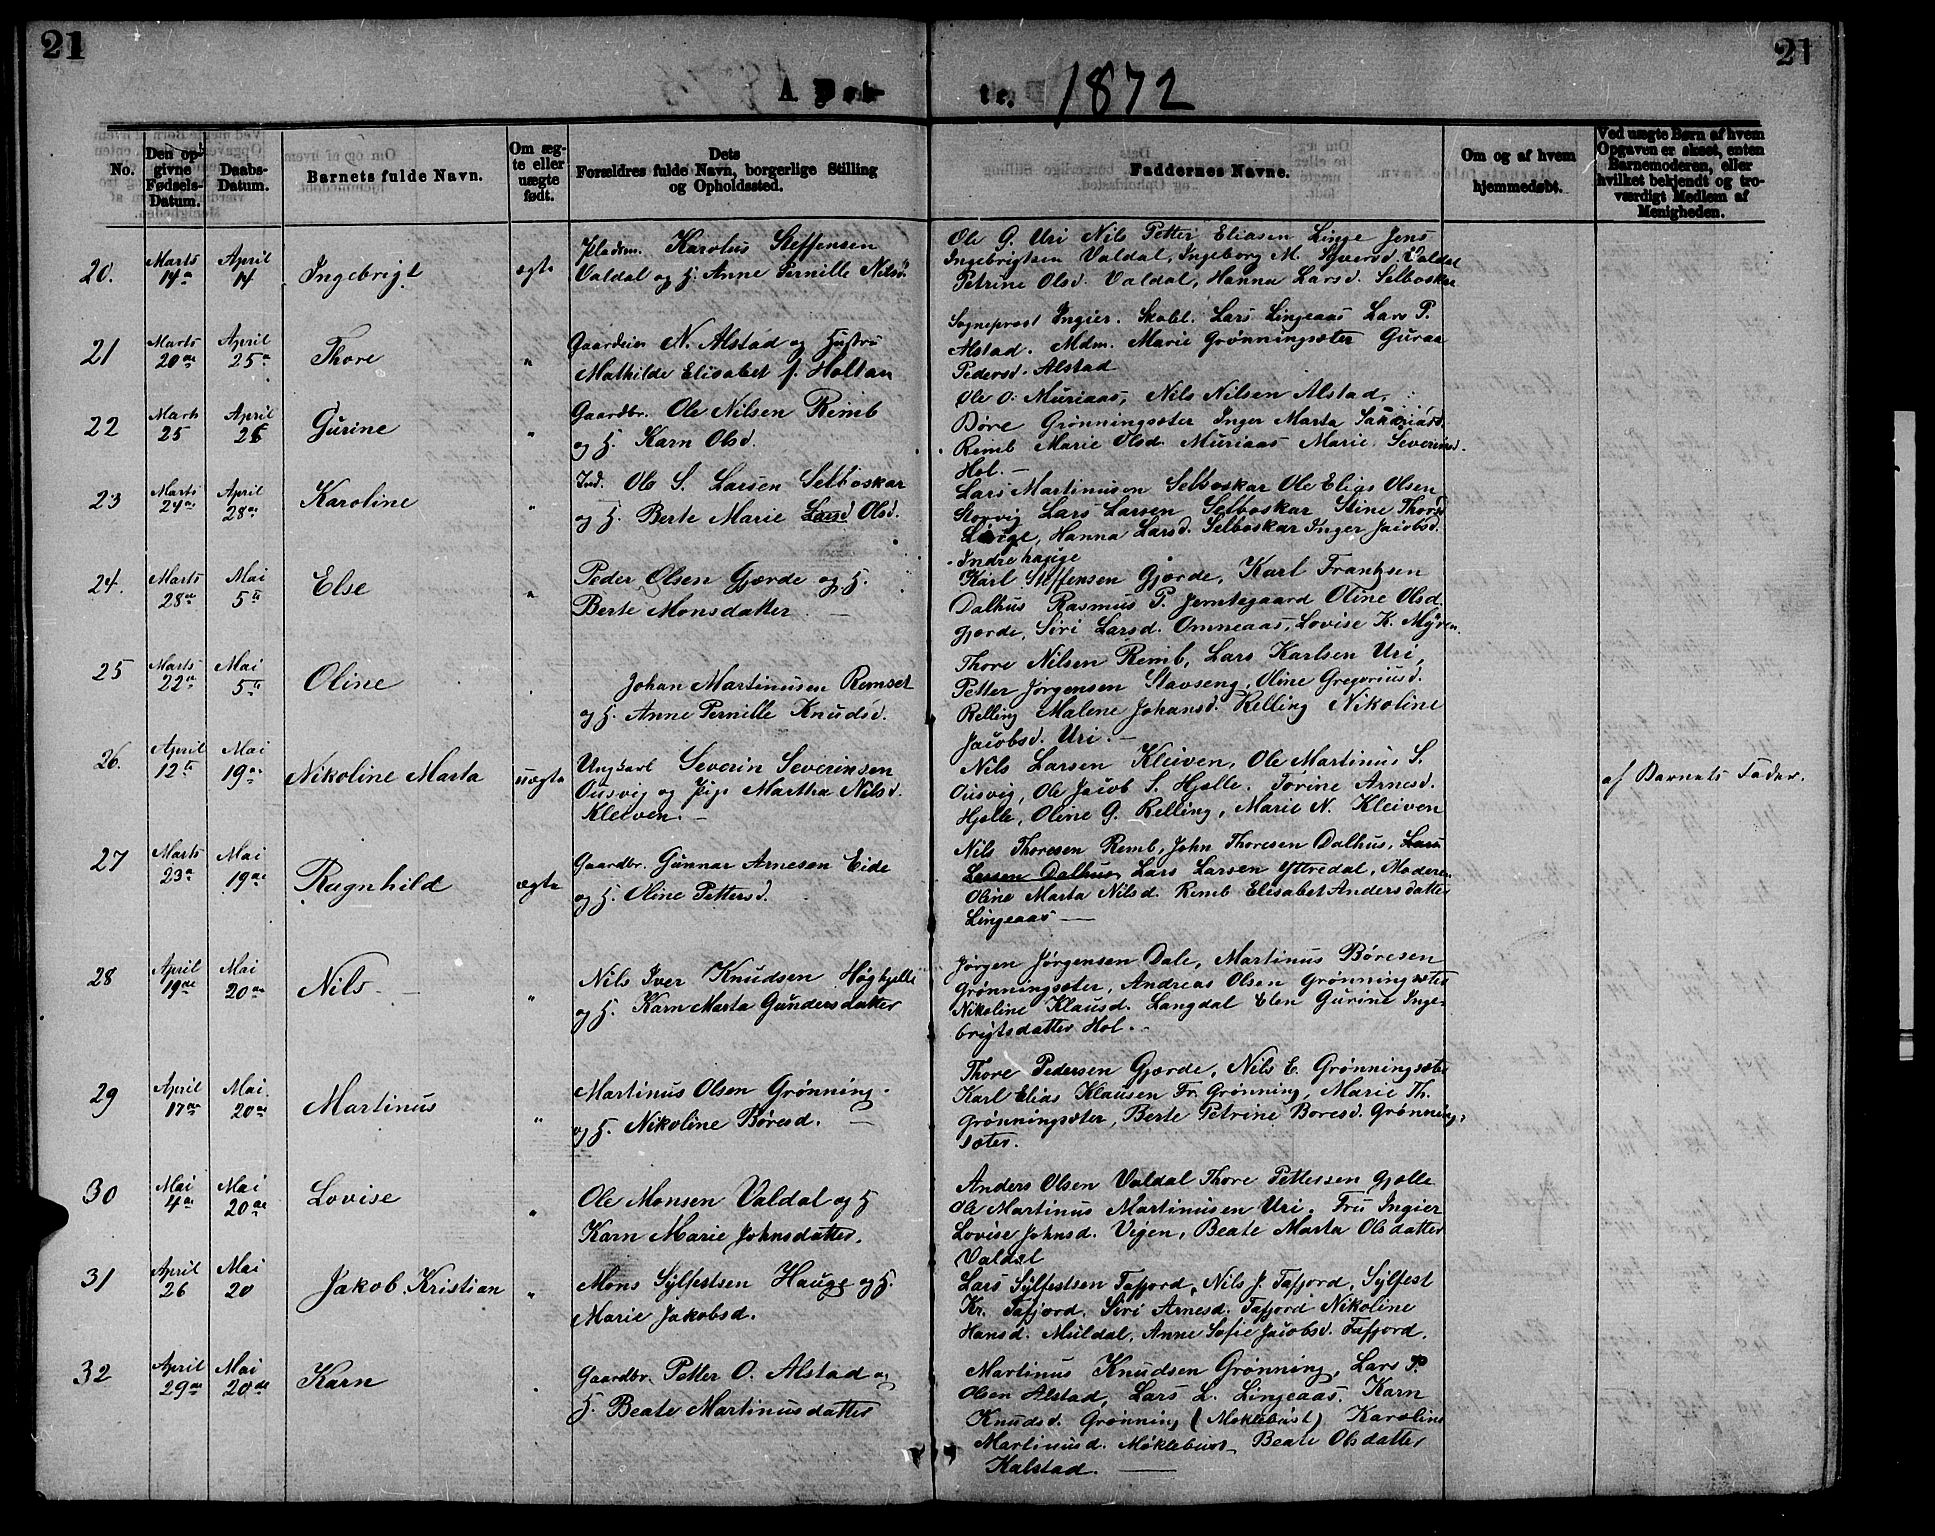 21
21
A Døb-
te. 1872
No.
Den op-
givne
Fødsels-
Datum.
Daabs-
Datum.
Barnets fulde Navn.
Om æg-
te eller
uægte
født.
Dets
Forældres fulde Navn, borgerlige Stilling
og Opholdssted.
Faddernes Navne.
Om og af hvem
hjemmedøbt.
Ved uægte Børn af hvem
Opgaven er skeet, enten
Barnemoderen, eller
hvilket bekjendt og tro-
værdigt Medlem af
Menigheden.
20. Marts April
14 14 Ingebrigt ægte
Pladsm. Karolus Steffensen
Valdal og H. Anne Pernille Nilsd.
Ole G. Uri Nils Petter Eliasen Linge Jens
Ingebrigtsen Valdal, Ingeborg M. Syversd. Valdal
Petrine Olsd. Valdal, Hanna Larsd. Selboskar
21 Marts April
20de 25de Thore "
Gaardm N. Alstad og Hustru
Mathilde Elisabet f. Holtan
Sogneprest Ingier. Skolel. Lars Lingeaas Lars P.
Alstad. Mdm. Marie Grønningsæter Guraa
Pedersd. Alstad
22 Marts April
25 Gurine "
Gaardbr. Ole Nilsen Remb
og H. Karn Olsd.
Ole O. Muriaas, Nils Nilsen Alstad,
Børe Grønningsæter Inger Marta Sakariasd.
Remb Marie Olsd. Muriaas Marie Severinsd.
Hol. -
23 Marts April
24de 28de Karoline "
Ind. Ole S. Larsen Selboskar
og H. Berte Marie Larsd Olsd.
Lars Martinusen Selboskar Ole Elias Olsen
Storvig Lars Larsen Selboskar Stine Thoresd
Linge, Hanna Larsd. Selboskar Inger Jacobsd.
Indrehauge
24. Marts Mai
28de 5te Else "
Peder Olsen Gjærde og H.
Berte Monsdatter
Karl Steffensen Gjærde, Karl Frantzen
Dalhus Rasmus P. Jemtegaard Oline Olsd
Gjærde, Siri Larsd. Omneaas, Lovise K. Myren.
25 Marts Mai
22de 5te Oline
Johan Martinusen Remset
og H. Anne Pernille Knudsd.
Thore Nilsen Remb, Lars Karlsen Uri,
Petter Jørgensen Stavseng, Oline Gregoriusd.
Relling Malene Johansd. Relling Nikoline
Jacobsd. Uri. -
26. April Mai
12te 19de Nikoline Marta uægte
Ungkarl Severin Severinsen
Ousvig og Pige Martha Nilsd.
Kleiven. -
Nils Larsen Kleiven, Ole Martinus S.
Ousvig, Ole Jacob S. Hjelle. Torine Arnesd.
Hjelle, Oline G. Relling, Marie N. Kleiven
af Barnets Fader.
27 Marts Mai
23de 19de Ragnhild ægte
Gaardbr. Gunnar Arnesen Eide
og H. Oline Pettersd.
Nils Thoresen Remb, John Thoresen Dalhus, Lars
Larsen Dalhus, Lars Larsen Ytredal, Moderen
Oline Marta Nilsd. Remb Elisabet Andersdatter
Lingeaas
28 April Mai
19de 20de Nils "
Nils Iver Knudsen Høghjelle
og H. Karn Marta Gundersdatter
Jørgen Jørgensen Dale, Martinus Børesen
Grønningsæter, Andreas Olsen Grønningsæter
Nikoline Klausd. Langdal Elen Gurine Inge-
brigtsdatter Hol.
29 April Mai
17de 20de Martinus "
Martinus Olsen Grønning
og H. Nikoline Børesd.
Thore Pedersen Gjærde, Nils E. Grønningsæter
Karl Elias Klausen Fr. Grønning, Marie Th.
Grønningsæter, Berte Petrine Boresd. Grønning-
sæter.
30 Mai Mai
4de 20de Lovise "
Ole Monsen Valdal og H
Karn Marie Johnsdatter.
Anders Olsen Valdal Thore Pettersen Gjelle
Ole Martinus Martinusen Uri. Fru Ingier
Lovise Johnsd. Vigen, Beate Marta Olsdatter
Valdal
31 April Mai
26 20 Jakob Kristian "
Mons Sylfestsen Hauge og H.
Marie Jakobsd.
Lars Sylfestsen Tafjord, Nils J. Tafjord, Sylfest
Kr. Tafjord. Siri Arnesd. Tafjord Nikoline
Hansd. Muldal, Anne Sofie Jacobsd. Tafjord.
32 April Mai
29de 20de Karn
Gaardbr. Petter O. Alstad og
H. Beate Martinusdatter
Martinus Knudsen Grønning, Lars P
Olsen Alstad, Lars L. Lingeaas. Karn
Knudsd. Grønning (Møklebust) Karoline
Martinusd. Møklebust Beate Olsdatter
Kalstad.